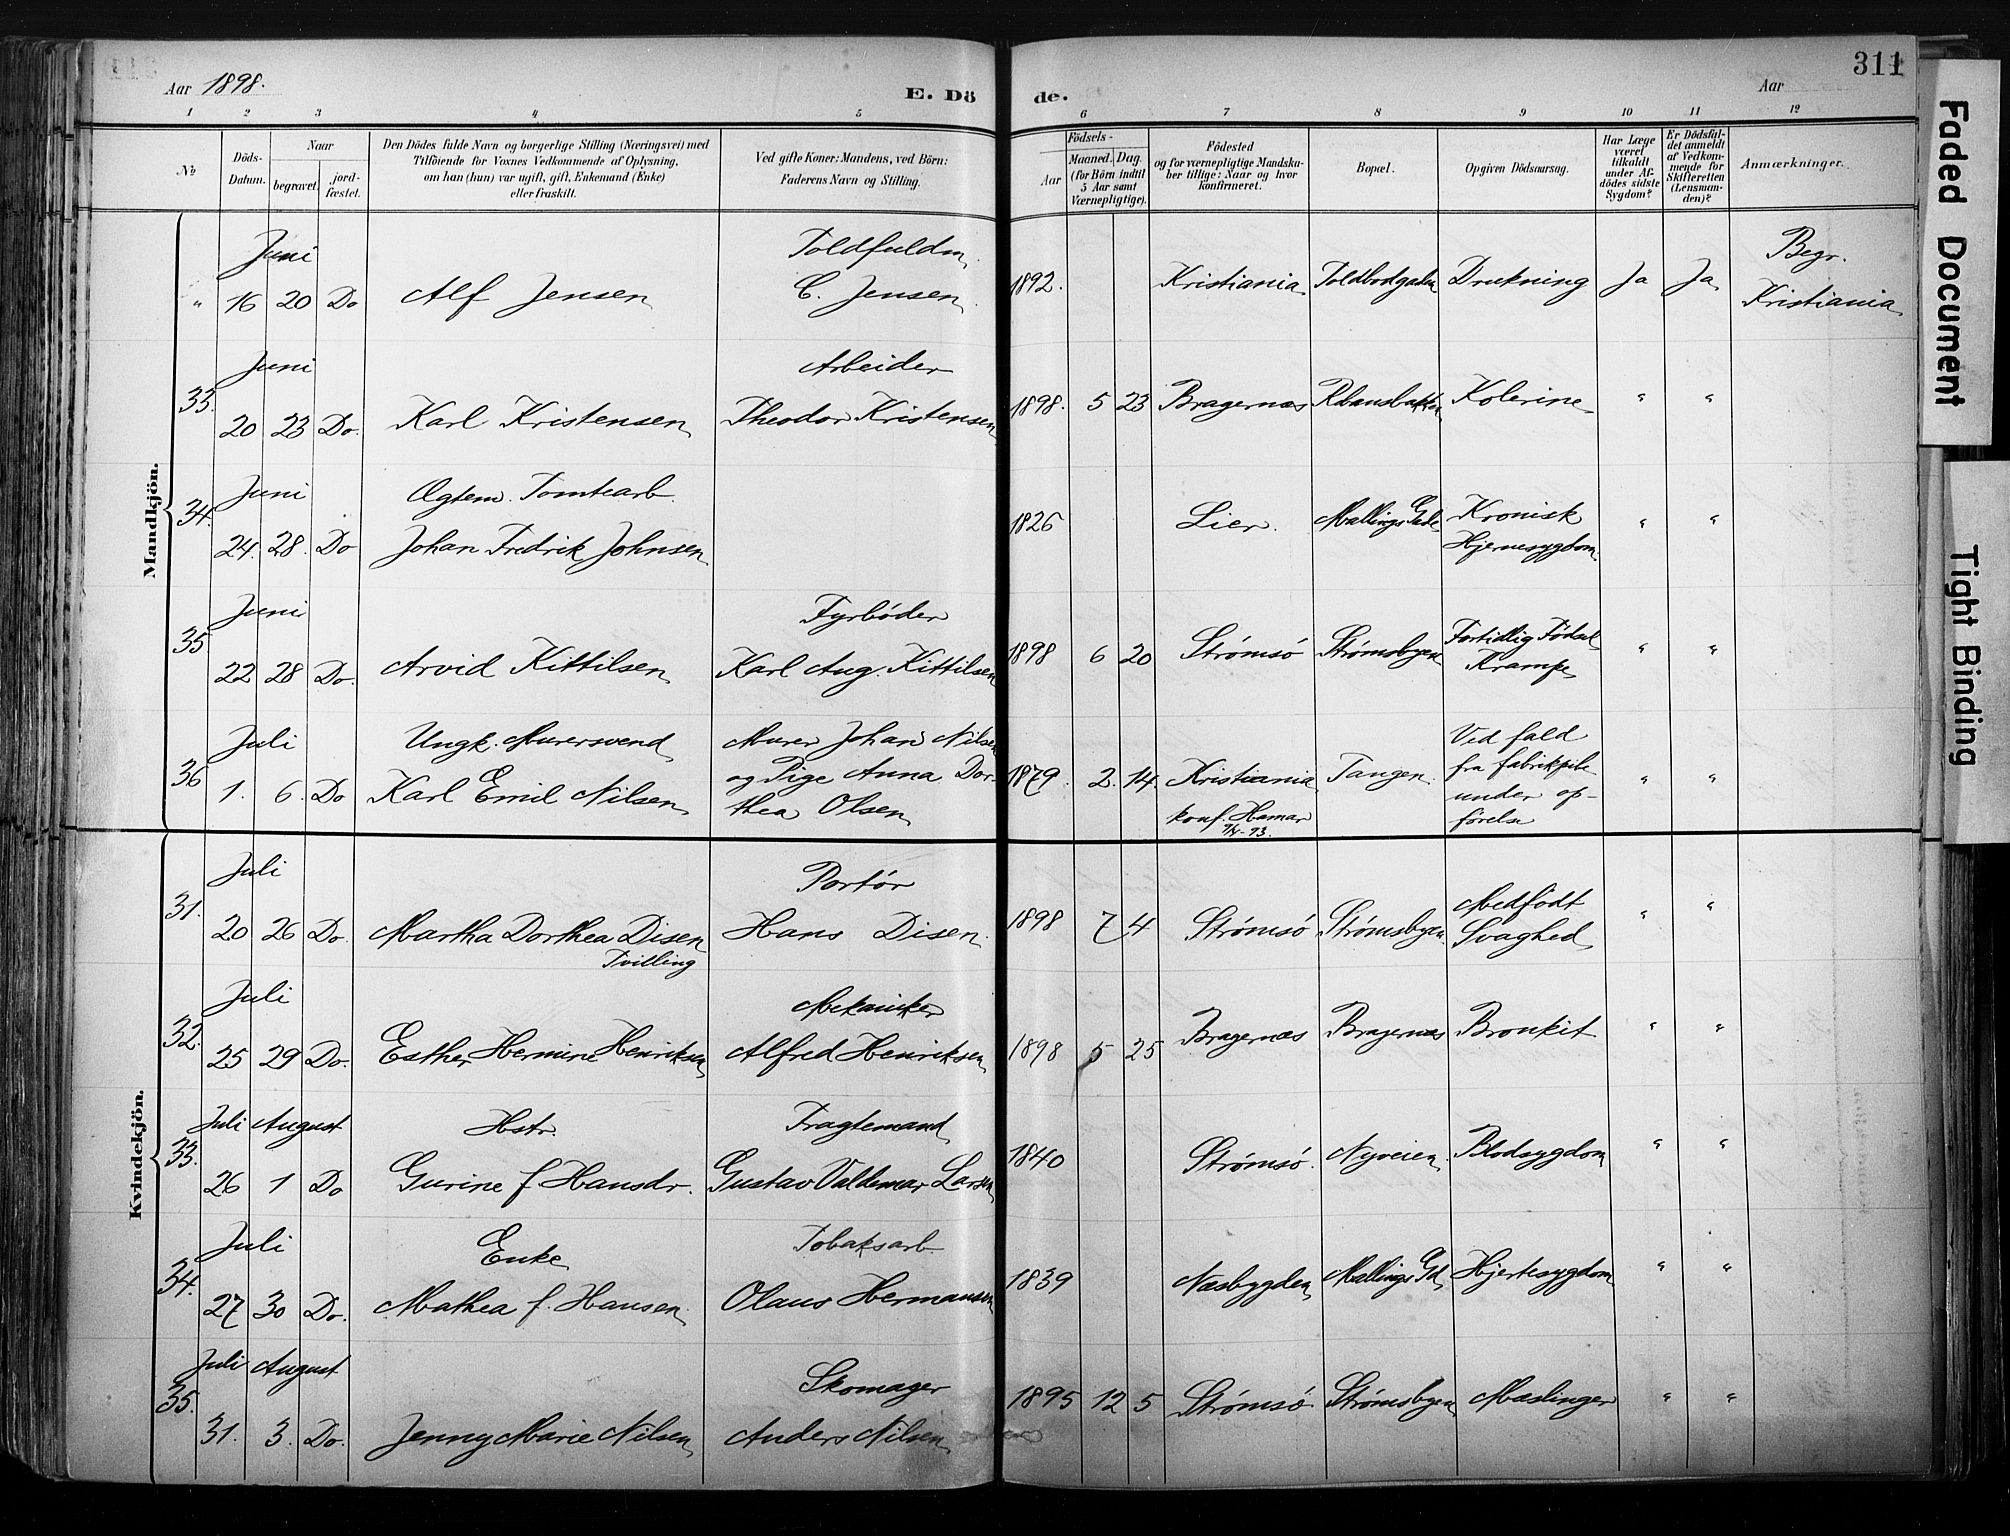 311
Aar 1898.
E. Dö de.
Aar
1 2 3 4 5 6 7 8 9 10 11 12
No
Döds-Datum.
Naar
begravet.
jord-fæstet.
Den Dödes fulde Navn og borgerlige Stilling (Næringsvei) med
Tilföiende for Voxnes Vedkommende af Oplysning,
om han (hun) var ugift, gift, Enkemand (Enke)
eller fraskilt.
Ved gifte Koner: Mandens, ved Börn:
Faderens Navn og Stilling.
Födsels-
Aar
Maaned. Dag.
(for Börn indtil
5 Aar samt
Værnepligtige).
Födested
og for værnepligtige Mandska-
ber tillige: Naar og hvor
konfirmeret.
Bopæl.
Opgiven Dödsaarsag.
Har Læge
været
tilkaldt
under Af-
dödes sidste
Sygdom?
Er Dödsfal-
det anmeldt
af Vedkom-
mende for
Skifteretten
(Lensman-
den)?
Anmærkninger.
Mandkjön.
Juni Toldfuldm. Begr.
" 16 20 Do Alf Jensen C. Jensen 1892. Kristiania Toldbodgaden Drukning Ja Ja Kristiania
Juni Arbeider
33. 20 23 Do. Karl Kristensen Theodor Kristensen 1898. 5 23 Bragernæs Kolerine " "
Juni Ægtem. Tomtearb.
34. 24. 28. Do Johan Fredrik Johnsen 1826 Lier. Mallings Gade Kronisk
Hjernesygdom. " "
Juni Fyrböder
35 22 28 Do. Arvid Kittilsen Karl Aug. Kittilsen 1898 6 20 Strømsö Strømsbyen Fortidlig Födsel
Krampe " "
Juli Ungk. Murersvend Murer Johan Nilsen
36 1. 6. Do Karl Emil Nilsen og Pige Anna Dor-
thea Olsen 1879. 2. 14. Kristiania
konf. Hamar
93. Tangen. Ved fald
fra fabrikpibe
under op-
förelse " "
Kvindekjön.
Juli Portör
31. 20 26 Do. Martha Dorthea Disen
Tvilling Hans Disen. 1898 7 4 Strømsö Strømsbyen. Medfödt
Svaghed " "
Juli Mekaniker
32. 25 29 Do. Esther Hermine Henriksen Alfred Henriksen 1898 5 25 Bragernæs Bragernæs Bronkit " "
Juli August Hstr. Fragtemand
33. 26 1 Do Gurine f. Hansdr. Gustav Valdemar Larsen 1840 Strømsö. Nyveien. Blodsygdom " "
Juli Enke Tobaksarb.
34. 27 30 Do. Mathea f. Hansen. Olaus Hermansen 1839 Næsbygden Mallings Gd. Hjertesygdom " "
Juli August Skomager
35. 31. 3. Do. Jenny Marie Nilsen Anders Nilsen 1895 12 5 Strømsö Strømsbyen Mæslinger " "
Faded Document
Tight Binding